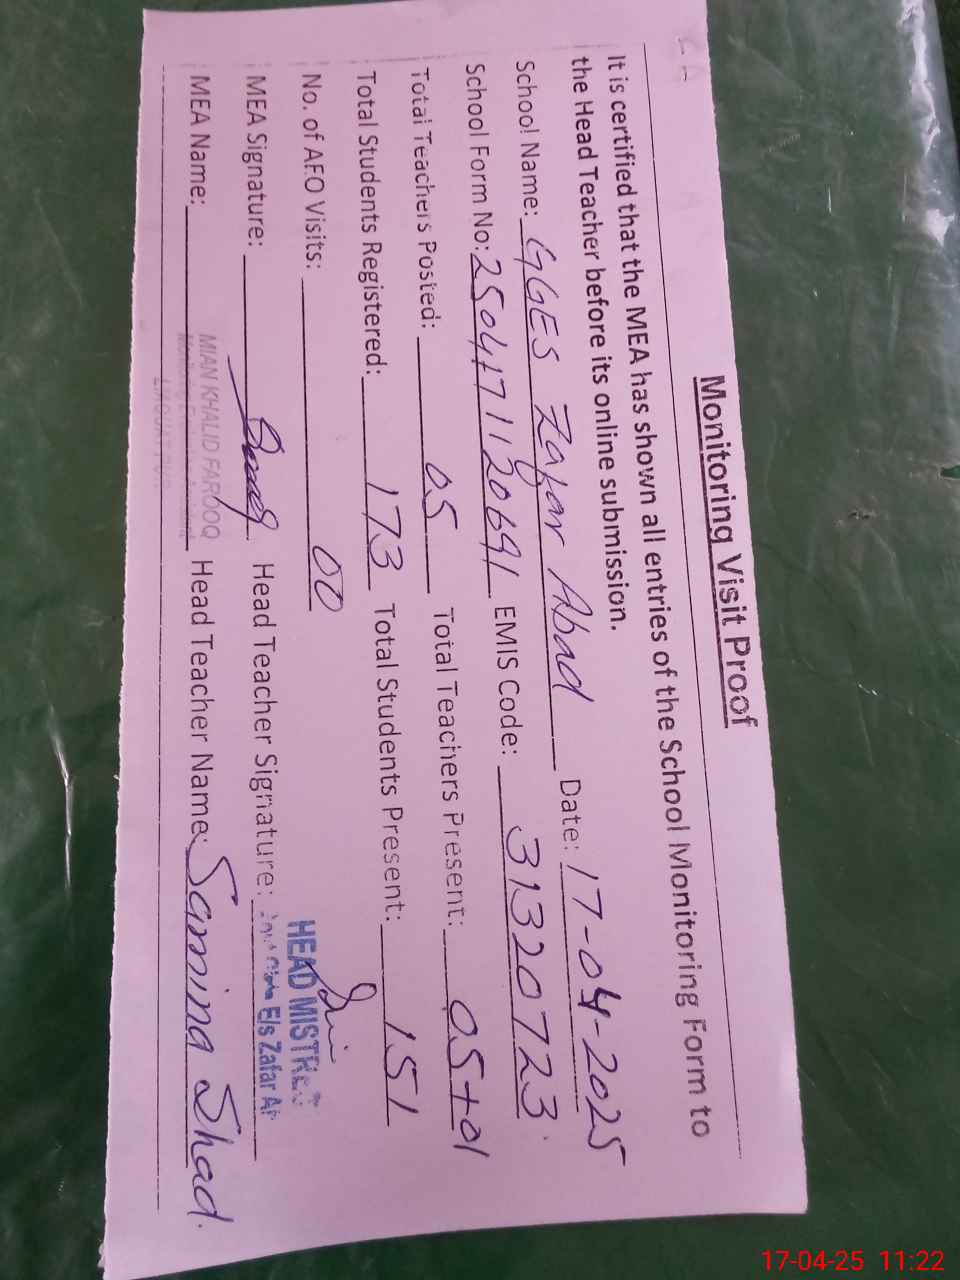 Monitoring Visit Proof
It is certified that the MEA has shown all entries of the School Monitoring Form to
the Head Teacher before its online submission.
School Name: GGES Zafar Abad Date: 17-04-2025
School Form No: 2504171120691 EMIS Code: 31320723
Total Teachers Posted: 05 Total Teachers Present: 05+01
Total Students Registered: 173 Total Students Present: 151
No. of AEO Visits: 00
HEAD MISTRESS
MEA Signature: Head Teacher Signature: E/s Zafar A
MEA Name: MIAN KHALID FAROOQ Head Teacher Name: Samina Shad.
17-04-25 11:22